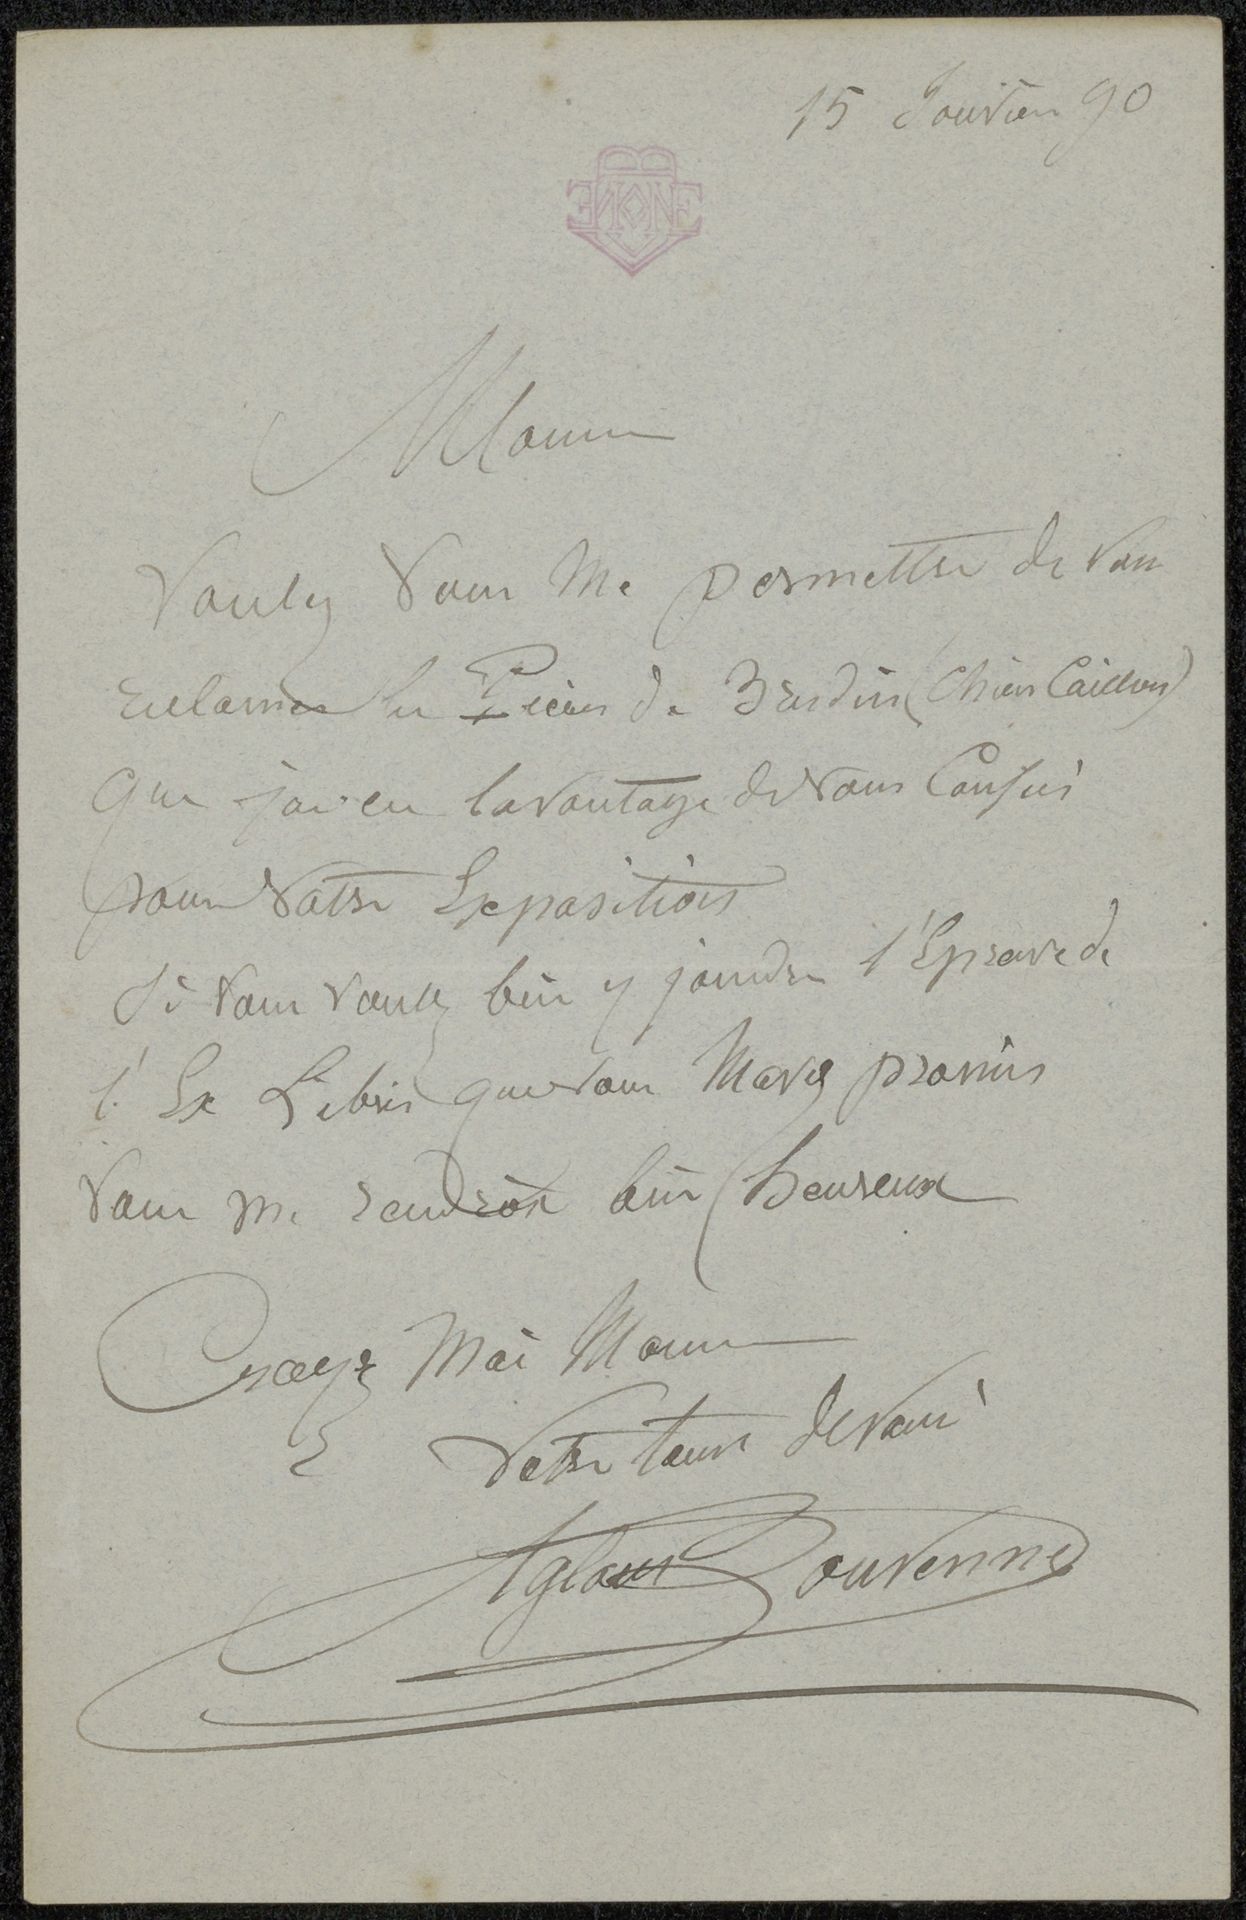 15 Janvier 90
Monsieur
Voulez Vous Me permettre de vous
reclamer les Pièces de Bresdin (Chien Caillou)
que j'ai eu l'avantage de vous Confier
pour Votre Exposition
Si Vous Voulez bien y joindre l'Epreuve de
l'Ex Libris que vous M'avez promis
Vous me rendrez bien heureux
Croyez Moi Monsieur
Votre tout devoué
Aglaus Bouvenne